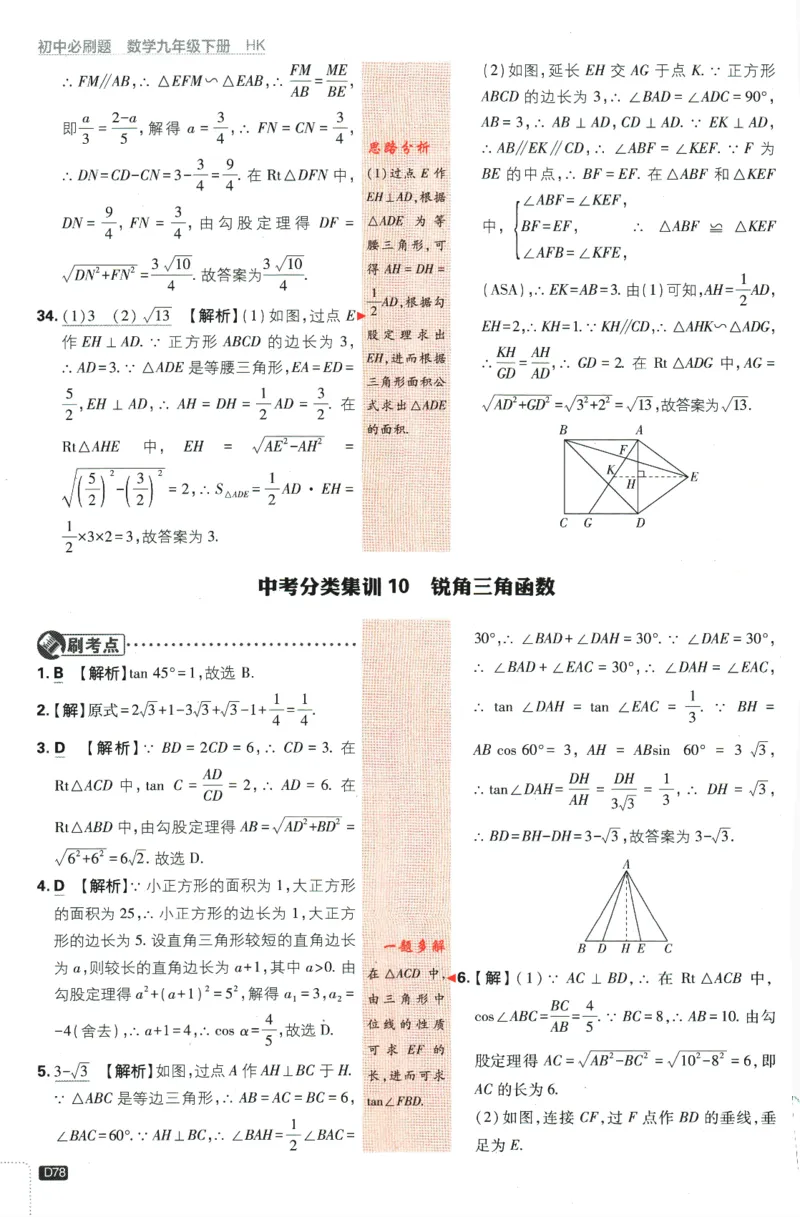 初中必刷题 数学九年级下册 HK
∴ FM∥AB,∴ △EFM∽△EAB,∴ FM/AB=ME/BE,
即 a/3=(2-a)/5,解得 a=3/4,∴ FN=CN=3/4,
∴ DN=CD-CN=3-3/4=9/4. 在 Rt△DFN 中,
DN=9/4, FN=3/4, 由勾股定理得 DF=
√(DN²+FN²)=3√10/4. 故答案为 3√10/4.
34. (1)3 (2) √13 【解析】(1)如图,过点 E
作 EH⊥AD. ∵ 正方形 ABCD 的边长为 3,
∴ AD=3. ∵ △ADE 是等腰三角形,EA=ED=
5/2,EH⊥AD,∴ AH=DH=1/2AD=3/2. 在
Rt△AHE 中, EH = √(AE²-AH²) =
√((5/2)²-(3/2)²)=2,∴ S△ADE=1/2AD·EH=
1/2×3×2=3,故答案为 3.
思路分析
(1)过点 E 作
EH⊥AD,根据
△ADE 为等
腰三角形,可
得 AH=DH=
1/2AD,根据勾
股定理求出
EH,进而根据
三角形面积公
式求出△ADE
的面积.
(2)如图,延长 EH 交 AG 于点 K. ∵ 正方形
ABCD 的边长为 3,∴ ∠BAD=∠ADC=90°,
AB=3,∴ AB⊥AD,CD⊥AD. ∵ EK⊥AD,
∴ AB∥EK∥CD,∴ ∠ABF=∠KEF. ∵ F 为
BE 的中点,∴ BF=EF. 在△ABF 和△KEF
中, {∠ABF=∠KEF,
BF=EF, ∴ △ABF≌△KEF
∠AFB=∠KFE,
(ASA),∴ EK=AB=3. 由(1)可知,AH=1/2AD,
EH=2,∴ KH=1. ∵ KH∥CD,∴ △AHK∽△ADG,
∴ KH/GD=AH/AD,∴ GD=2. 在 Rt△ADG 中,AG=
√(AD²+GD²)=√(3²+2²)=√13,故答案为√13.
B A
F
K E
H
C G D
中考分类集训 10 锐角三角函数
刷考点
1. B 【解析】tan 45°=1,故选 B.
2.【解】原式=2√3+1-3√3+√3-1+1/4=1/4.
3. D 【解析】∵ BD=2CD=6,∴ CD=3. 在
Rt△ACD 中,tan C=AD/CD=2,∴ AD=6. 在
Rt△ABD 中,由勾股定理得 AB=√(AD²+BD²)=
√(6²+6²)=6√2. 故选 D.
4. D 【解析】∵ 小正方形的面积为 1,大正方形
的面积为 25,∴ 小正方形的边长为 1,大正方
形的边长为 5. 设直角三角形较短的直角边长
为 a,则较长的直角边长为 a+1,其中 a>0. 由
勾股定理得 a²+(a+1)²=5²,解得 a₁=3,a₂=
-4(舍去),∴ a+1=4,∴ cos α=4/5,故选 D.
5. 3-√3 【解析】如图,过点 A 作 AH⊥BC 于 H.
∵ △ABC 是等边三角形,∴ AB=AC=BC=6,
∠BAC=60°. ∵ AH⊥BC,∴ ∠BAH=1/2∠BAC=
一题多解
在△ACD 中,
由三角形中
位线的性质
可求 EF 的
长,进而可求
tan∠FBD.
30°,∴ ∠BAD+∠DAH=30°. ∵ ∠DAE=30°,
∴ ∠BAD+∠EAC=30°,∴ ∠DAH=∠EAC,
∴ tan ∠DAH = tan ∠EAC = 1/3. ∵ BH =
AB cos 60°= 3, AH = ABsin 60° = 3√3,
∴ tan∠DAH=DH/AH=DH/3√3=1/3,∴ DH=√3,
∴ BD=BH-DH=3-√3,故答案为 3-√3.
A
B D H E C
6.【解】(1)∵ AC⊥BD,∴ 在 Rt△ACB 中,
cos∠ABC=BC/AB=4/5. ∵ BC=8,∴ AB=10. 由勾
股定理得 AC=√(AB²-BC²)=√(10²-8²)=6,即
AC 的长为 6.
(2)如图,连接 CF,过 F 点作 BD 的垂线,垂
足为 E.
D78